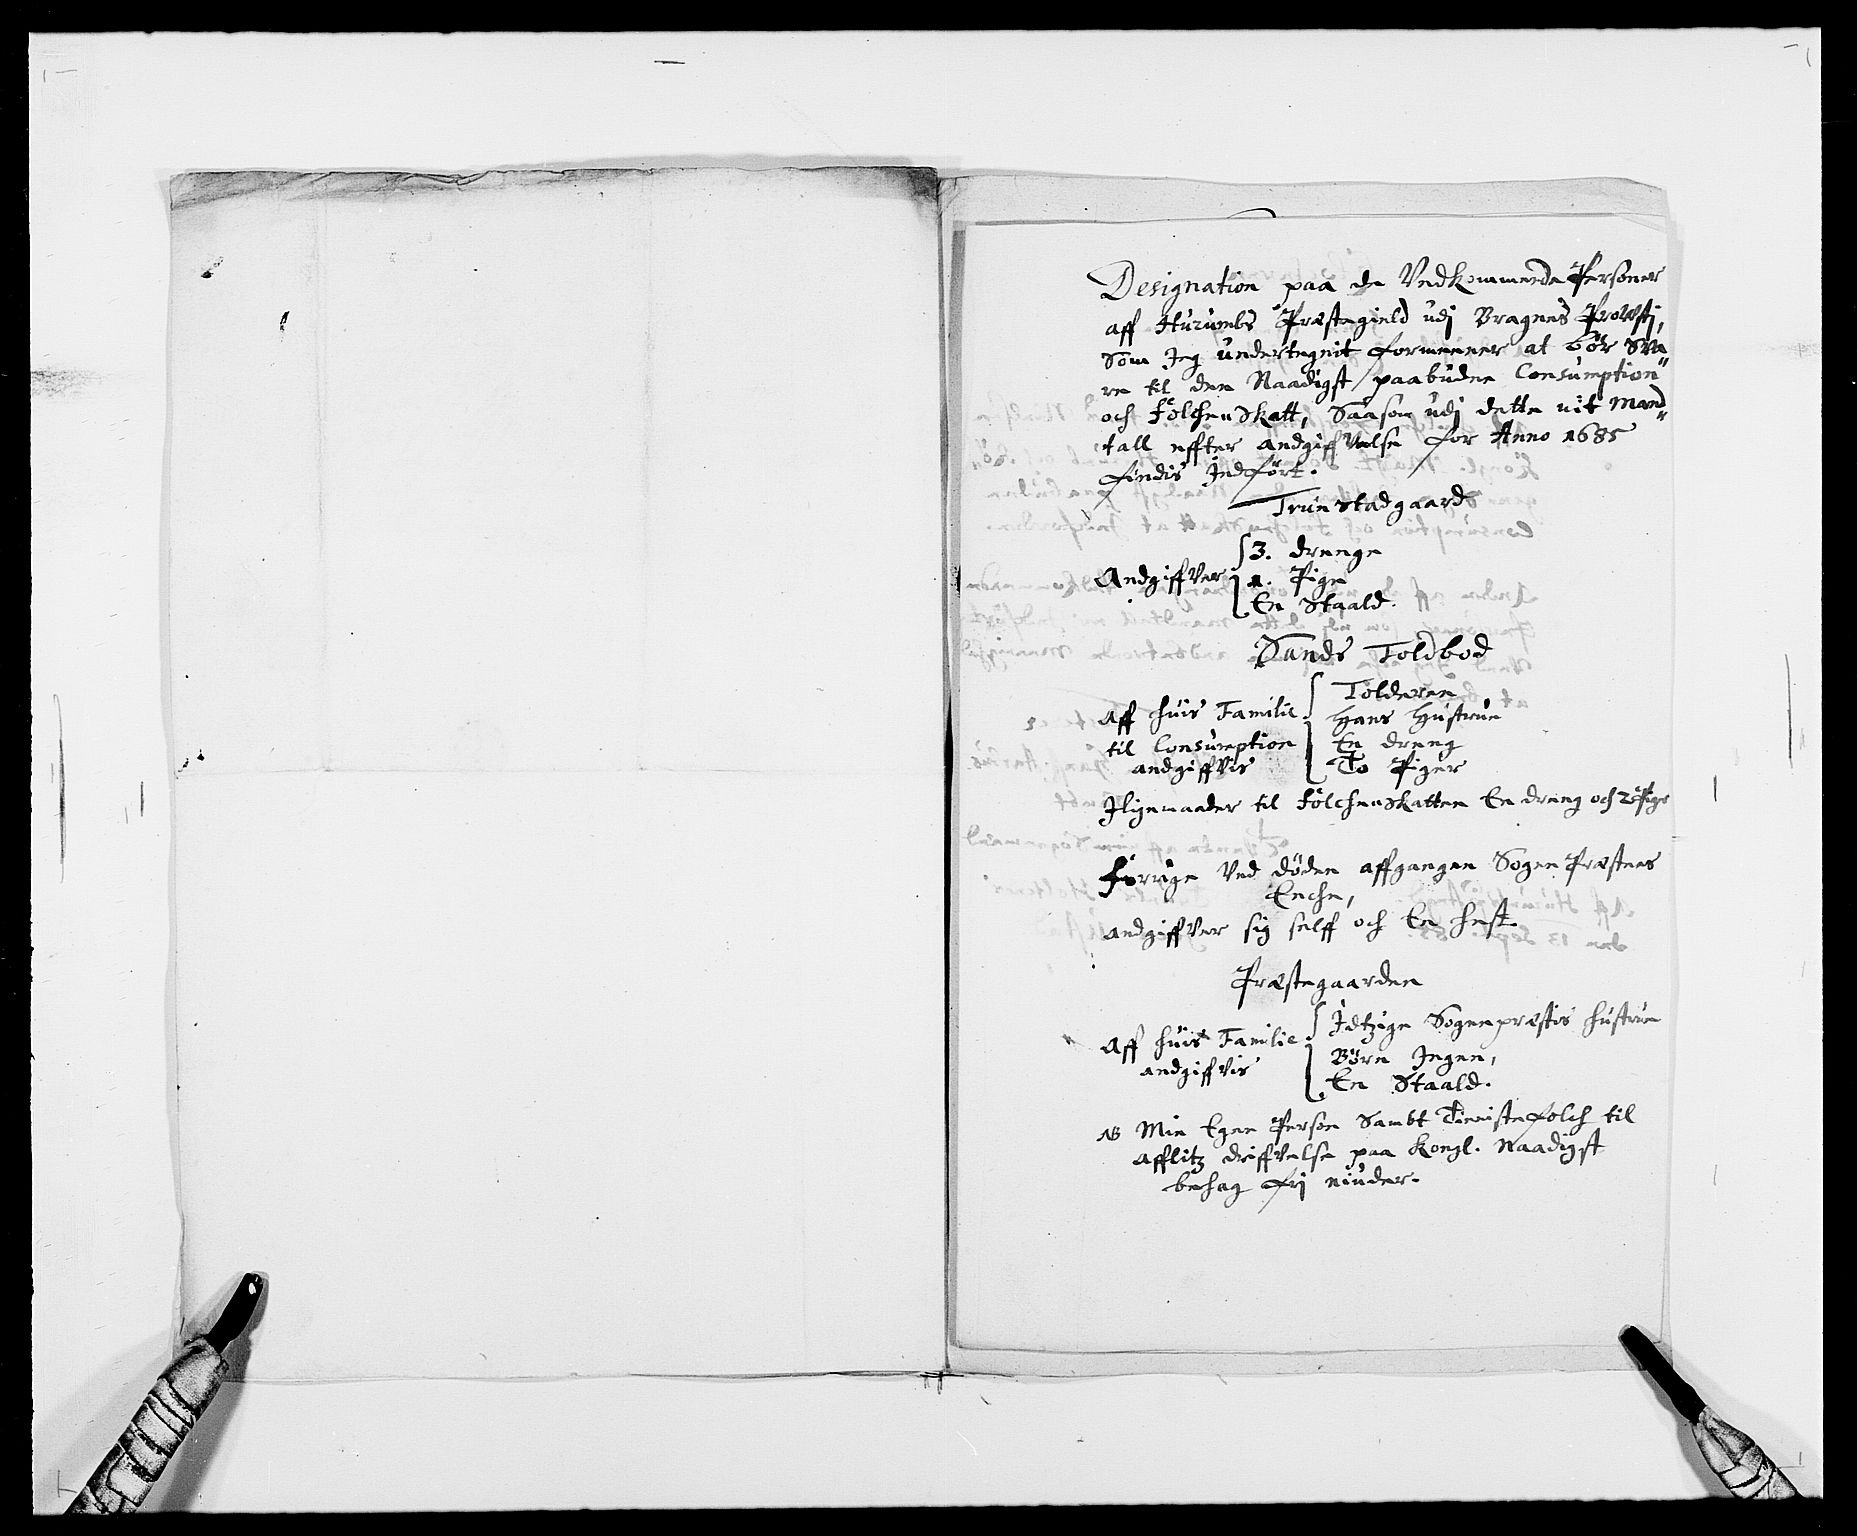 Designation paa de Vedkommende Personer
aff Hurumbs Præstegield udj Bragnes Provstj,
Som Jeg undertegnit formeener at bör Sva"
re til den Naadigst paabudne Consumption"
och Folcheskatt, Saasom udj dette mit Mand"
tall effter andgiffvelse for Anno 1685
findis Indfört.
Trunstadgaard
Andgiffver
3. drenge
1. Pige
En Staald.
Sands Toldbod
Aff huis Familie
til Consumption
andgiffvis
Tolderen
Hans Hustrue
En dreng
To Piger
Iligemaader til Folcheskatten En dreng och 2 Piger
Forrige Ved döden affgangen Sogne Præstes
Enche,
andgiffver sig selff och En hest.
Præstegaarden
Aff huis Familie
andgiffvis
Idtzige Sognepræstis hustrue
Börn Ingen,
En Staald.
NB Min Egen Person Sambt Tienistefolch til
afflitz driffvelse paa Kongl. Naadigst
behag frj niuder.